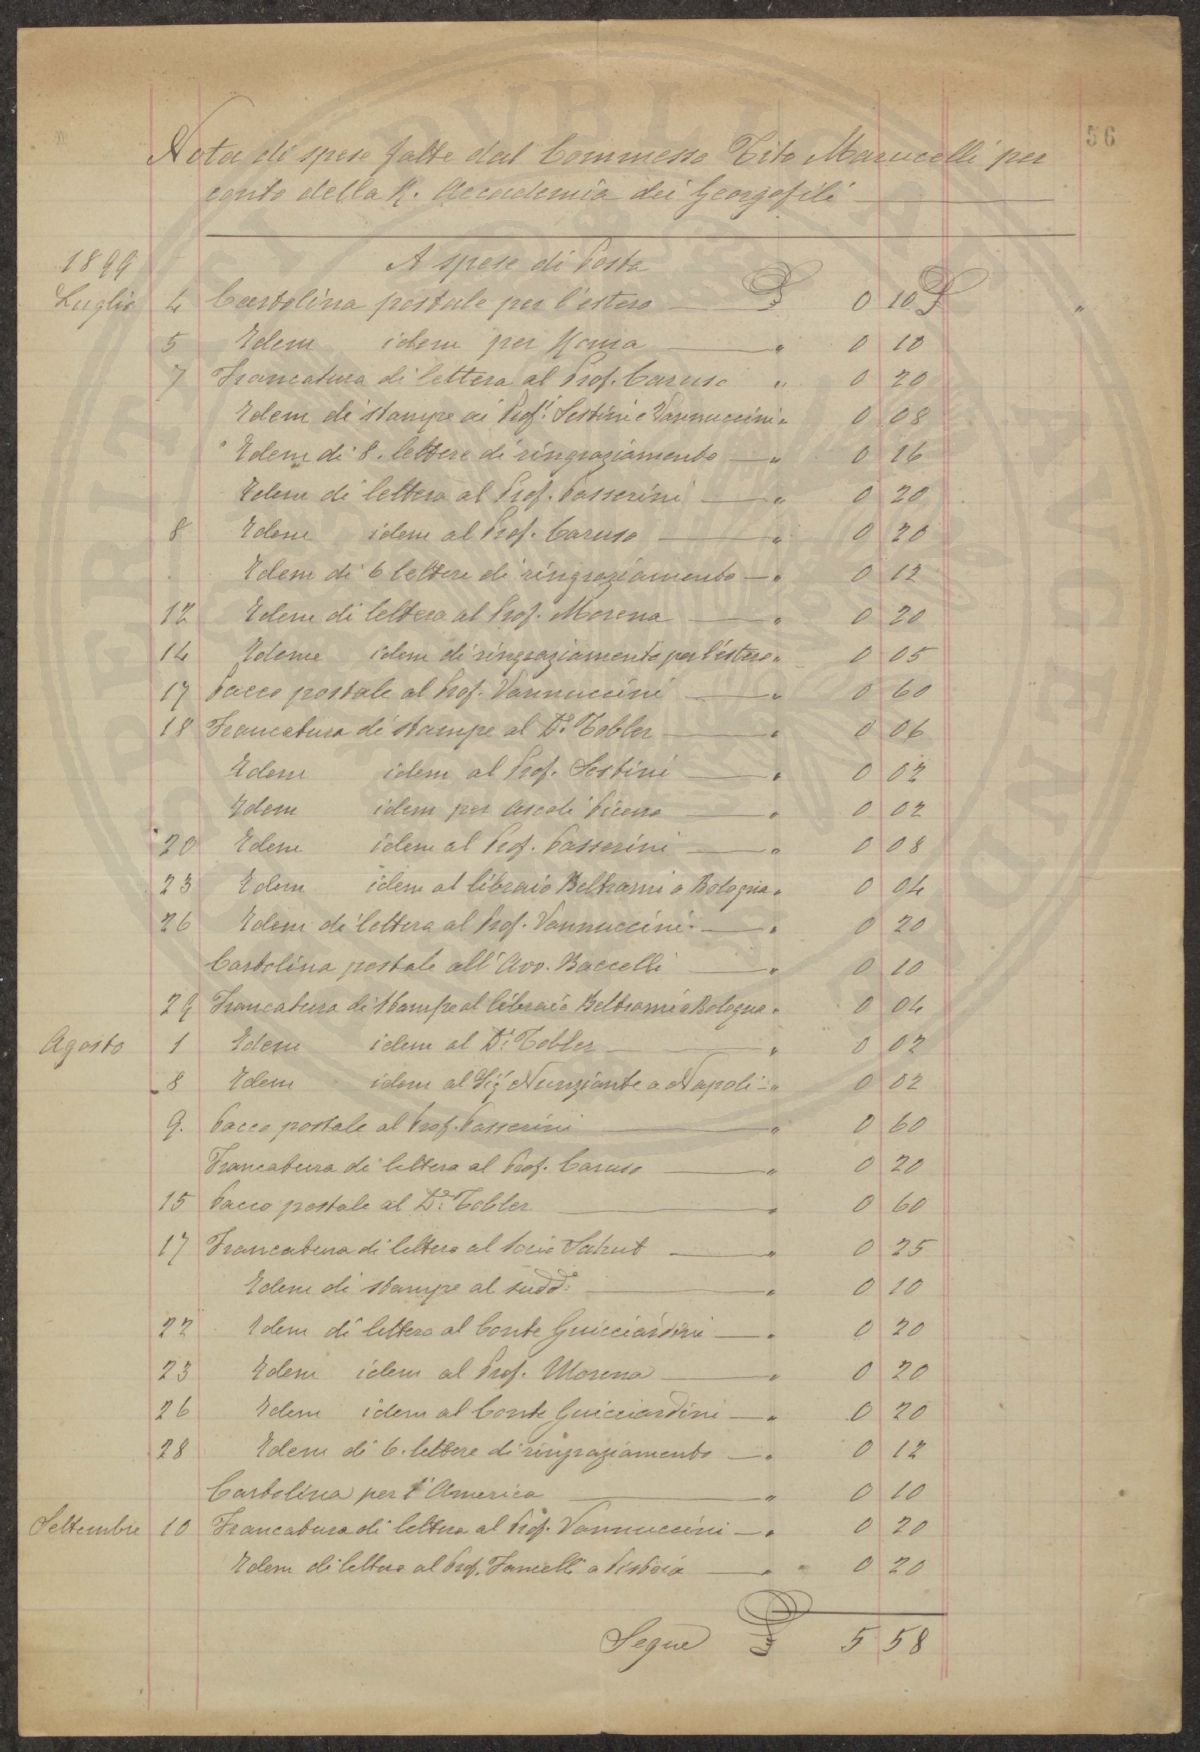 56
Nota di spese fatte dal Commesso Tito Marucelli per
conto della R. Accademia dei Georgofili
1899 A spese di Posta
Luglio 4 Cartolina postale per l'estero £ 0 10 £ "
5 Idem idem per Roma " 0 10
7 Francatura di lettera al Prof. Caruso " 0 20
Idem di stampe ai Prof.i Sestini e Vannuccini " 0 08
Idem di 8. lettere di ringraziamento " 0 16
Idem di lettera al Prof. Passerini " 0 20
8 Idem idem al Prof. Caruso " 0 20
Idem di 6 lettere di ringraziamento " 0 12
12 Idem di lettera al Prof. Morena " 0 20
14 Idem idem di ringraziamento per l'estero " 0 05
17 Pacco postale al Prof. Vannuccini " 0 60
18 Francatura di stampe al D.r Tobler " 0 06
Idem idem al Prof. Sestini " 0 02
Idem idem per Ascoli Piceno " 0 02
20 Idem idem al Prof. Passerini " 0 08
23 Idem idem al libraio Beltrami a Bologna " 0 04
26 Idem di lettera al Prof. Vannuccini. " 0 20
Cartolina postale all'Avv. Baccelli " 0 10
29 Francatura di stampe al libraio Beltrami a Bologna " 0 04
Agosto 1 Idem idem al D.r Tobler " 0 02
8 Idem idem al Sig.r Nunziante a Napoli " 0 02
9. Pacco postale al Prof. Passerini " 0 60
Francatura di lettera al Prof. Caruso " 0 20
15 Pacco postale al D.r Tobler " 0 60
17 Francatura di lettera al Socio Sahut " 0 25
Idem di stampe al sudd.o " 0 10
22 Idem di lettera al Conte Guicciardini " 0 20
23 Idem idem al Prof. Morena " 0 20
26 Idem idem al Conte Guicciardini " 0 20
28 Idem di 6. lettere di ringraziamento " 0 12
Cartolina per l'America " 0 10
Settembre 10 Francatura di lettera al Prof. Vannuccini " 0 20
Idem di lettera al Prof. Fancelli a Pistoia " 0 20
Segue £ 5 58